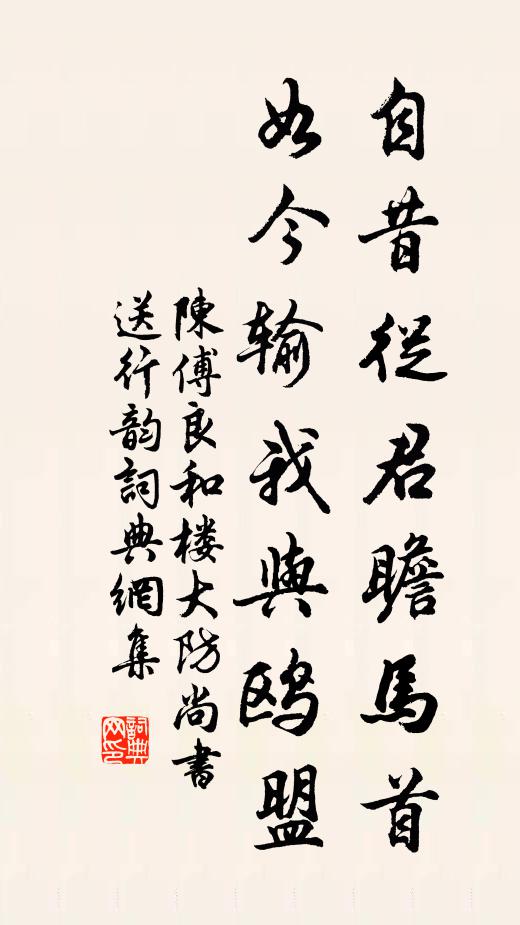 自昔從君瞻馬首
如今输我與鸥盟
陳傅良和楼大防尚書
送行韵詞典網集
詞典网印